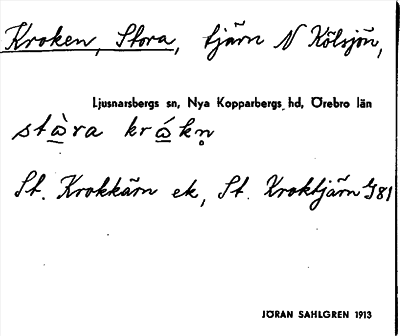 Kroken, Stora, tjärn N Kölsjön,
Ljusnarsbergs sn, Nya Kopparbergs hd, Örebro län
stàra krákn̥
St. Krokkärn ek, St. Kroktjärn G81
JÖRAN SAHLGREN 1913